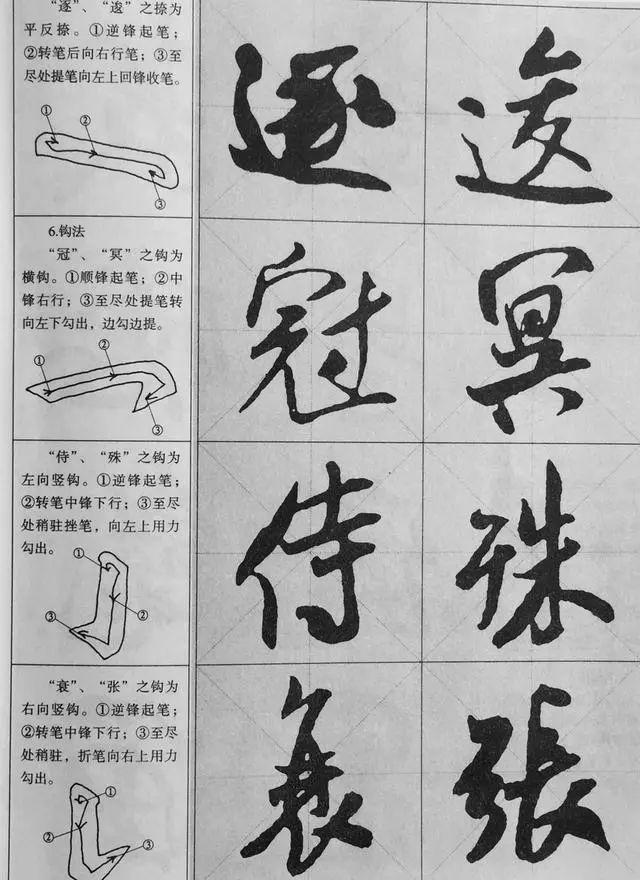 “逐”、“逡”之捺为
平反捺。①逆锋起笔；
②转笔后向右行笔；③至
尽处提笔向左上回锋收笔。
①
②
③
逐 逡
6.钩法
“冠”、“冥”之钩为
横钩。①顺锋起笔；②中
锋右行；③至尽处提笔转
向左下勾出，边勾边提。
①
②
③
冠 冥
“侍”、“殊”之钩为
左向竖钩。①逆锋起笔；
②转笔中锋下行；③至尽
处稍驻挫笔，向左上用力
勾出。
①
②
③
侍 殊
“衰”、“张”之钩为
右向竖钩。①逆锋起笔；
②转笔中锋下行；③至尽
处稍驻，折笔向右上用力
勾出。
①
②
③
衰 張